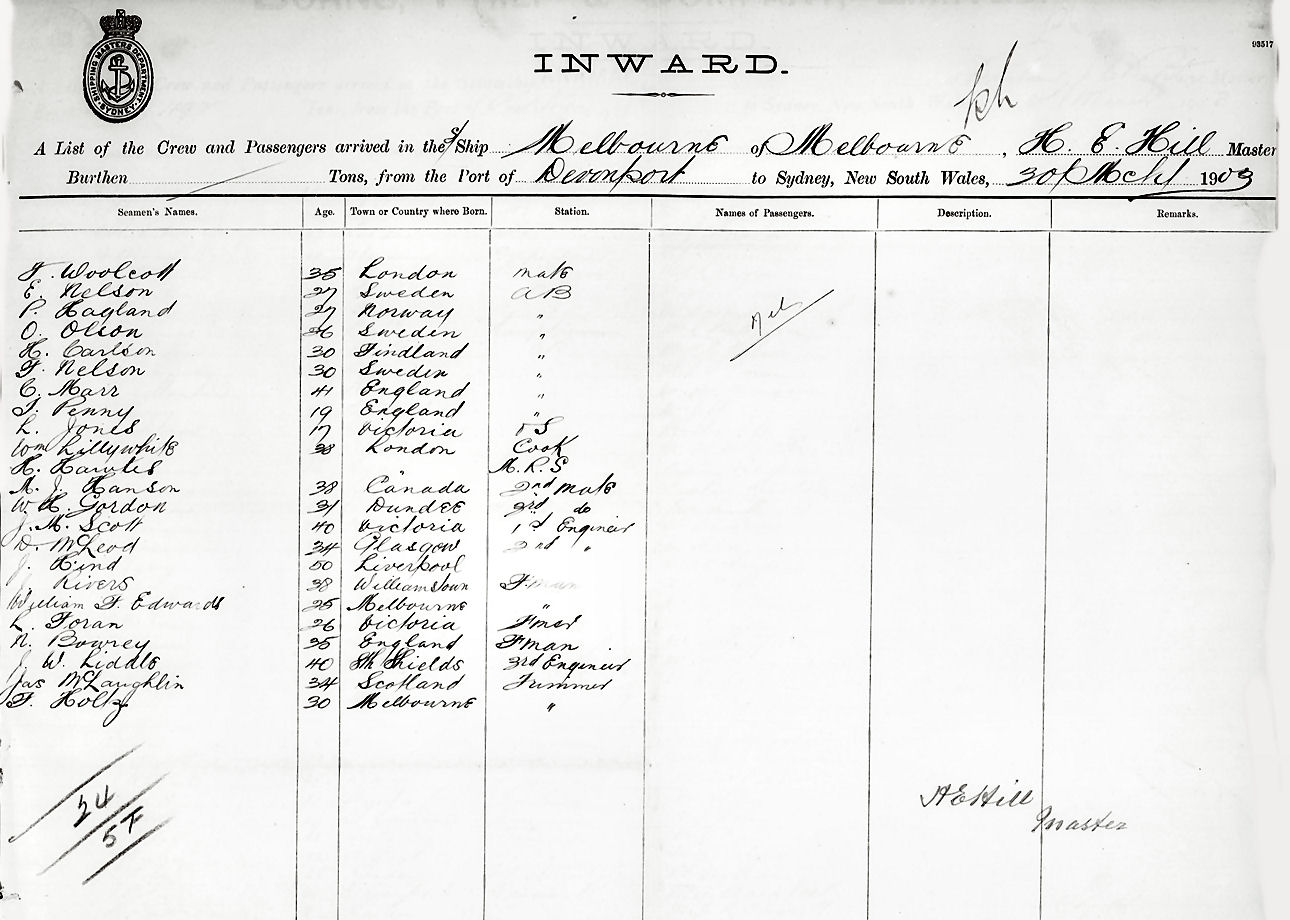 SHIPPING MASTERS DEPARTMENT SYDNEY
93517
INWARD.
A List of the Crew and Passengers arrived in the S/ Ship Melbourne of Melbourne, H. E. Hill Master
Burthen Tons, from the Port of Devonport to Sydney, New South Wales, 30 Mch 1903
Seamen's Names. Age. Town or Country where Born. Station. Names of Passengers. Description. Remarks.
F. Woolcott 35 London mate
E. Nelson 27 Sweden AB
P. Hagland 27 Norway "
O. Olson 26 Sweden "
Nil
H. Carlson 30 Findland "
F. Nelson 30 Sweden "
C. Marr 41 England "
T. Penny 19 England "
L. Jones 17 Victoria OS
Wm Lillywhite 38 London Cook
H. Hawles " M.R.S
M. J. Hanson 38 Canada 2nd mate
W H. Gordon 31 Dundee 3rd do
J. M. Scott 40 Victoria 1st Engineer
D. McLeod 34 Glasgow 2nd "
J. Hind 50 Liverpool
J. Rivers 38 Williamstown Fman
William F. Edwards 25 Melbourne "
L. Foran 26 Victoria
N. Bowrey 35 England Fman
J. W. Liddle 40 Sth Shields 3rd Engineer
Jas McLaughlin 34 Scotland Trimmer
F. Holtz 30 Melbourne "
24
57
H E Hill
Master